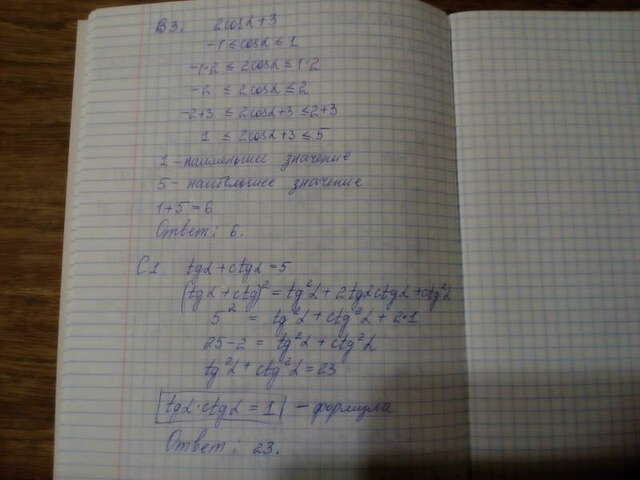 В3. 2cosα+3
-1 ≤ cosα ≤ 1
-1·2 ≤ 2cosα ≤ 1·2
-2 ≤ 2cosα ≤ 2
-2+3 ≤ 2cosα+3 ≤ 2+3
1 ≤ 2cosα+3 ≤ 5
1 - наименьшее значение
5 - наибольшее значение
1+5=6
Ответ: 6.
С1 tgα + ctgα = 5
(tgα + ctg)² = tg²α + 2tgα ctgα + ctg²α
5² = tg²α + ctg²α + 2·1
25-2 = tg²α + ctg²α
tg²α + ctg²α = 23
tgα·ctgα = 1 - формула
Ответ: 23.